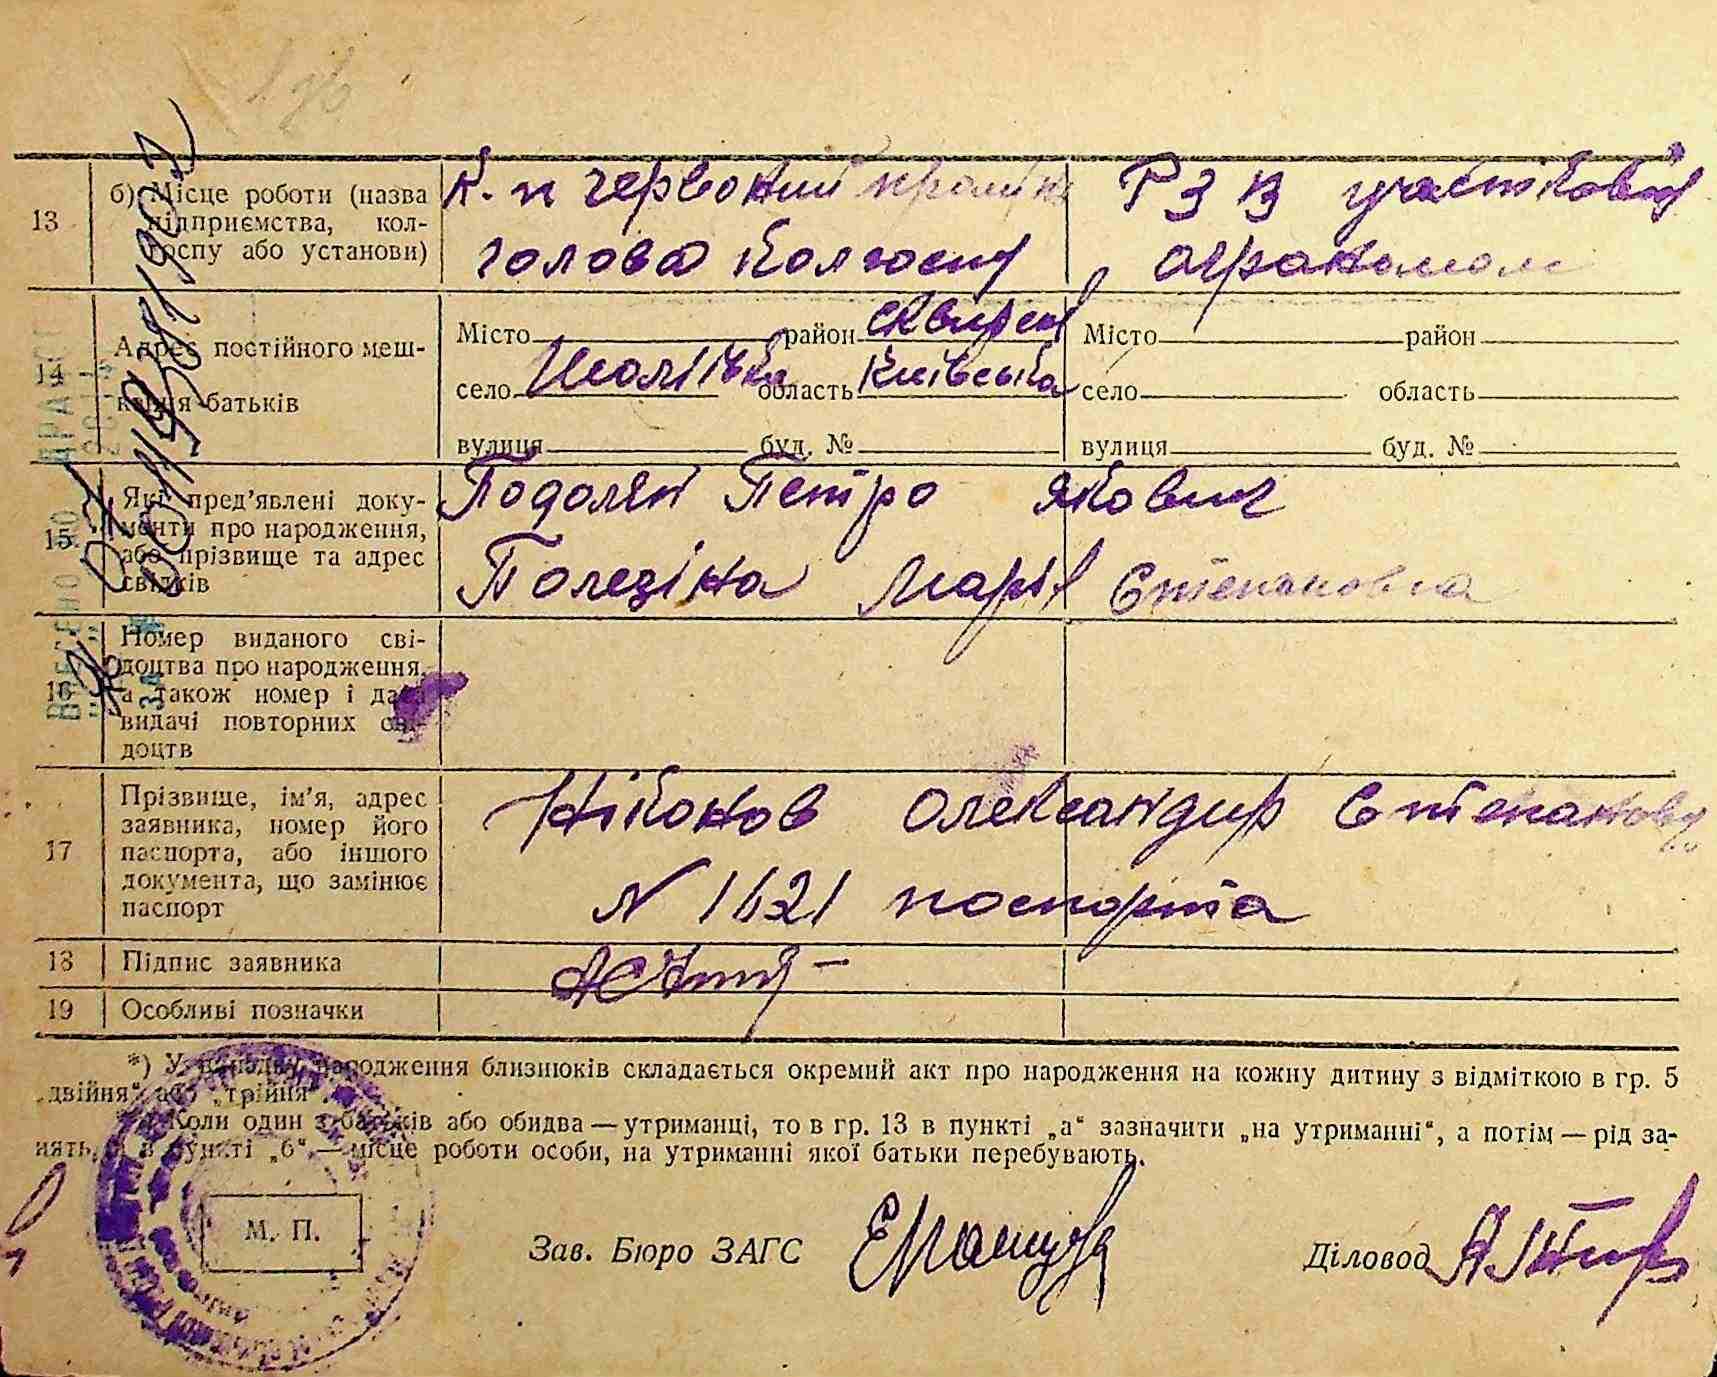 13 б) Місце роботи (назва підприємства, кол-
госпу або установи)
К. п червоний промін
голова колгоспу
РЗВ участковий
аграномом
14 Адрес постійного меш-
кання батьків
Місто район Сквирськ
село область Київська
вулиця буд. №
Місто район
село область
вулиця буд. №
15 Які пред'явлені доку-
менти про народження,
або прізвище та адрес
свідків
Подолян Петро Якович
Полезіна Марія Степановна
16 Номер виданого сві-
доцтва про народження,
а також номер і дата
видачі повторних сві-
доцтв
17 Прізвище, ім'я, адрес
заявника, номер його
паспорта, або іншого
документа, що замінює
паспорт
Ніконов Олександир Степанович
N 1621 паспорта
18 Підпис заявника
19 Особливі позначки
*) У випадку народження близнюків складається окремий акт про народження на кожну дитину з відміткою в гр. 5
„двійня“ або „трійня“.
Коли один з батьків або обидва — утриманці, то в гр. 13 в пункті „а“ зазначити „на утриманні“, а потім — рід за-
нять, а в пункті „б“ — місце роботи особи, на утриманні якої батьки перебувають.
М. П.
Зав. Бюро ЗАГС
Діловод